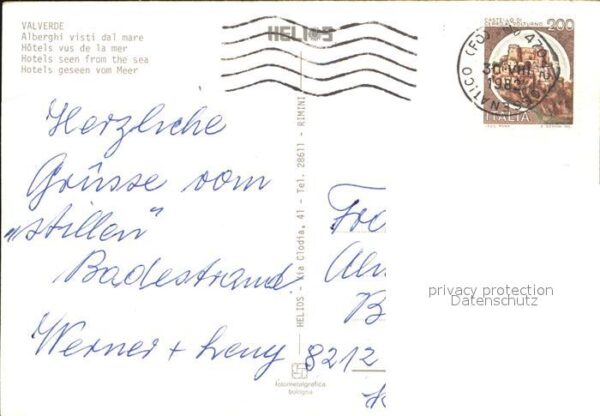 VALVERDE
Alberghi visti dal mare
Hôtels vus de la mer
Hotels seen from the sea
Hotels geseen vom Meer
HELIOS
CASTELLO DI
CERRO AL VOLTURNO
200
ITALIA
30 VIII
1983
HELIOS - Via Clodia, 41 - Tel. 28611 - RIMINI
Herzliche
Grüsse vom
„stillen"
Badestrand
Werner + Leny
8212
fotometalgrafica
bologna
privacy protection
Datenschutz